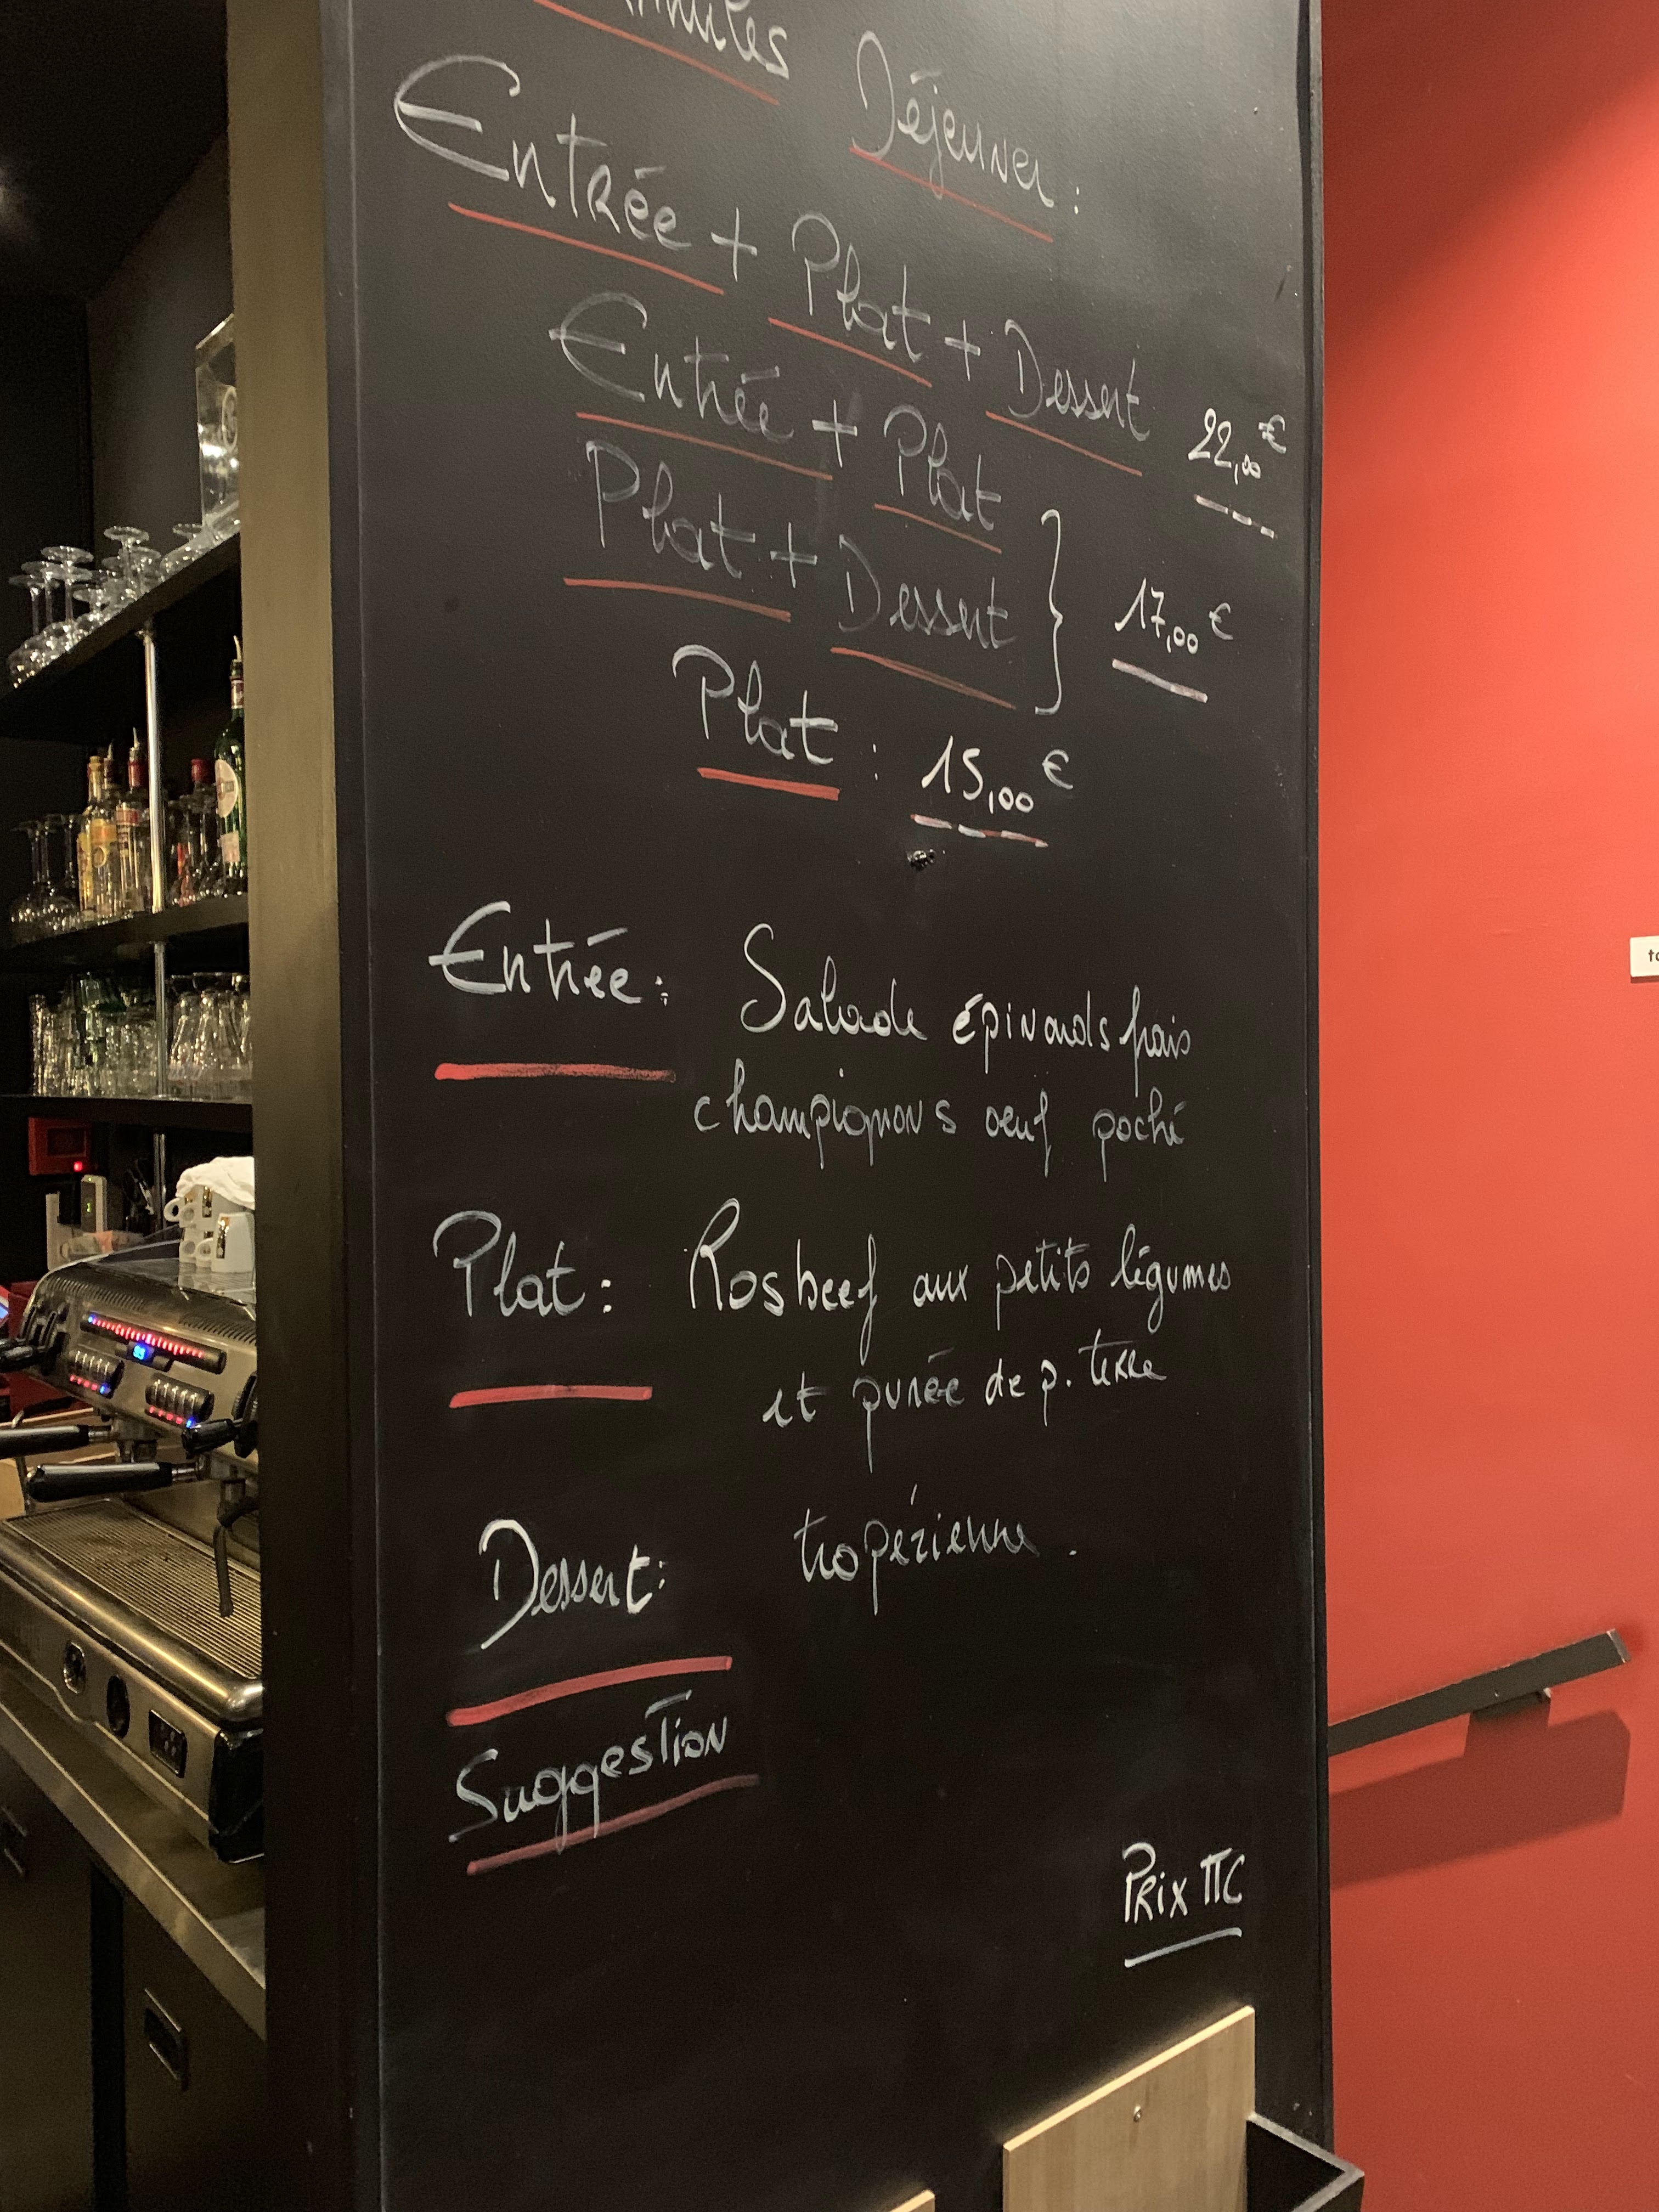 Déjeuner :
Entrée + Plat + Dessert 22,00 €
Entrée + Plat
Plat + Dessert } 17,00 €
Plat : 15,00 €
Entrée : Salade épinards frais
champignons oeuf poché
Plat : Rosbeef aux petits légumes
et purée de p. terre
Dessert : tropézienne .
Suggestion
Prix TTC